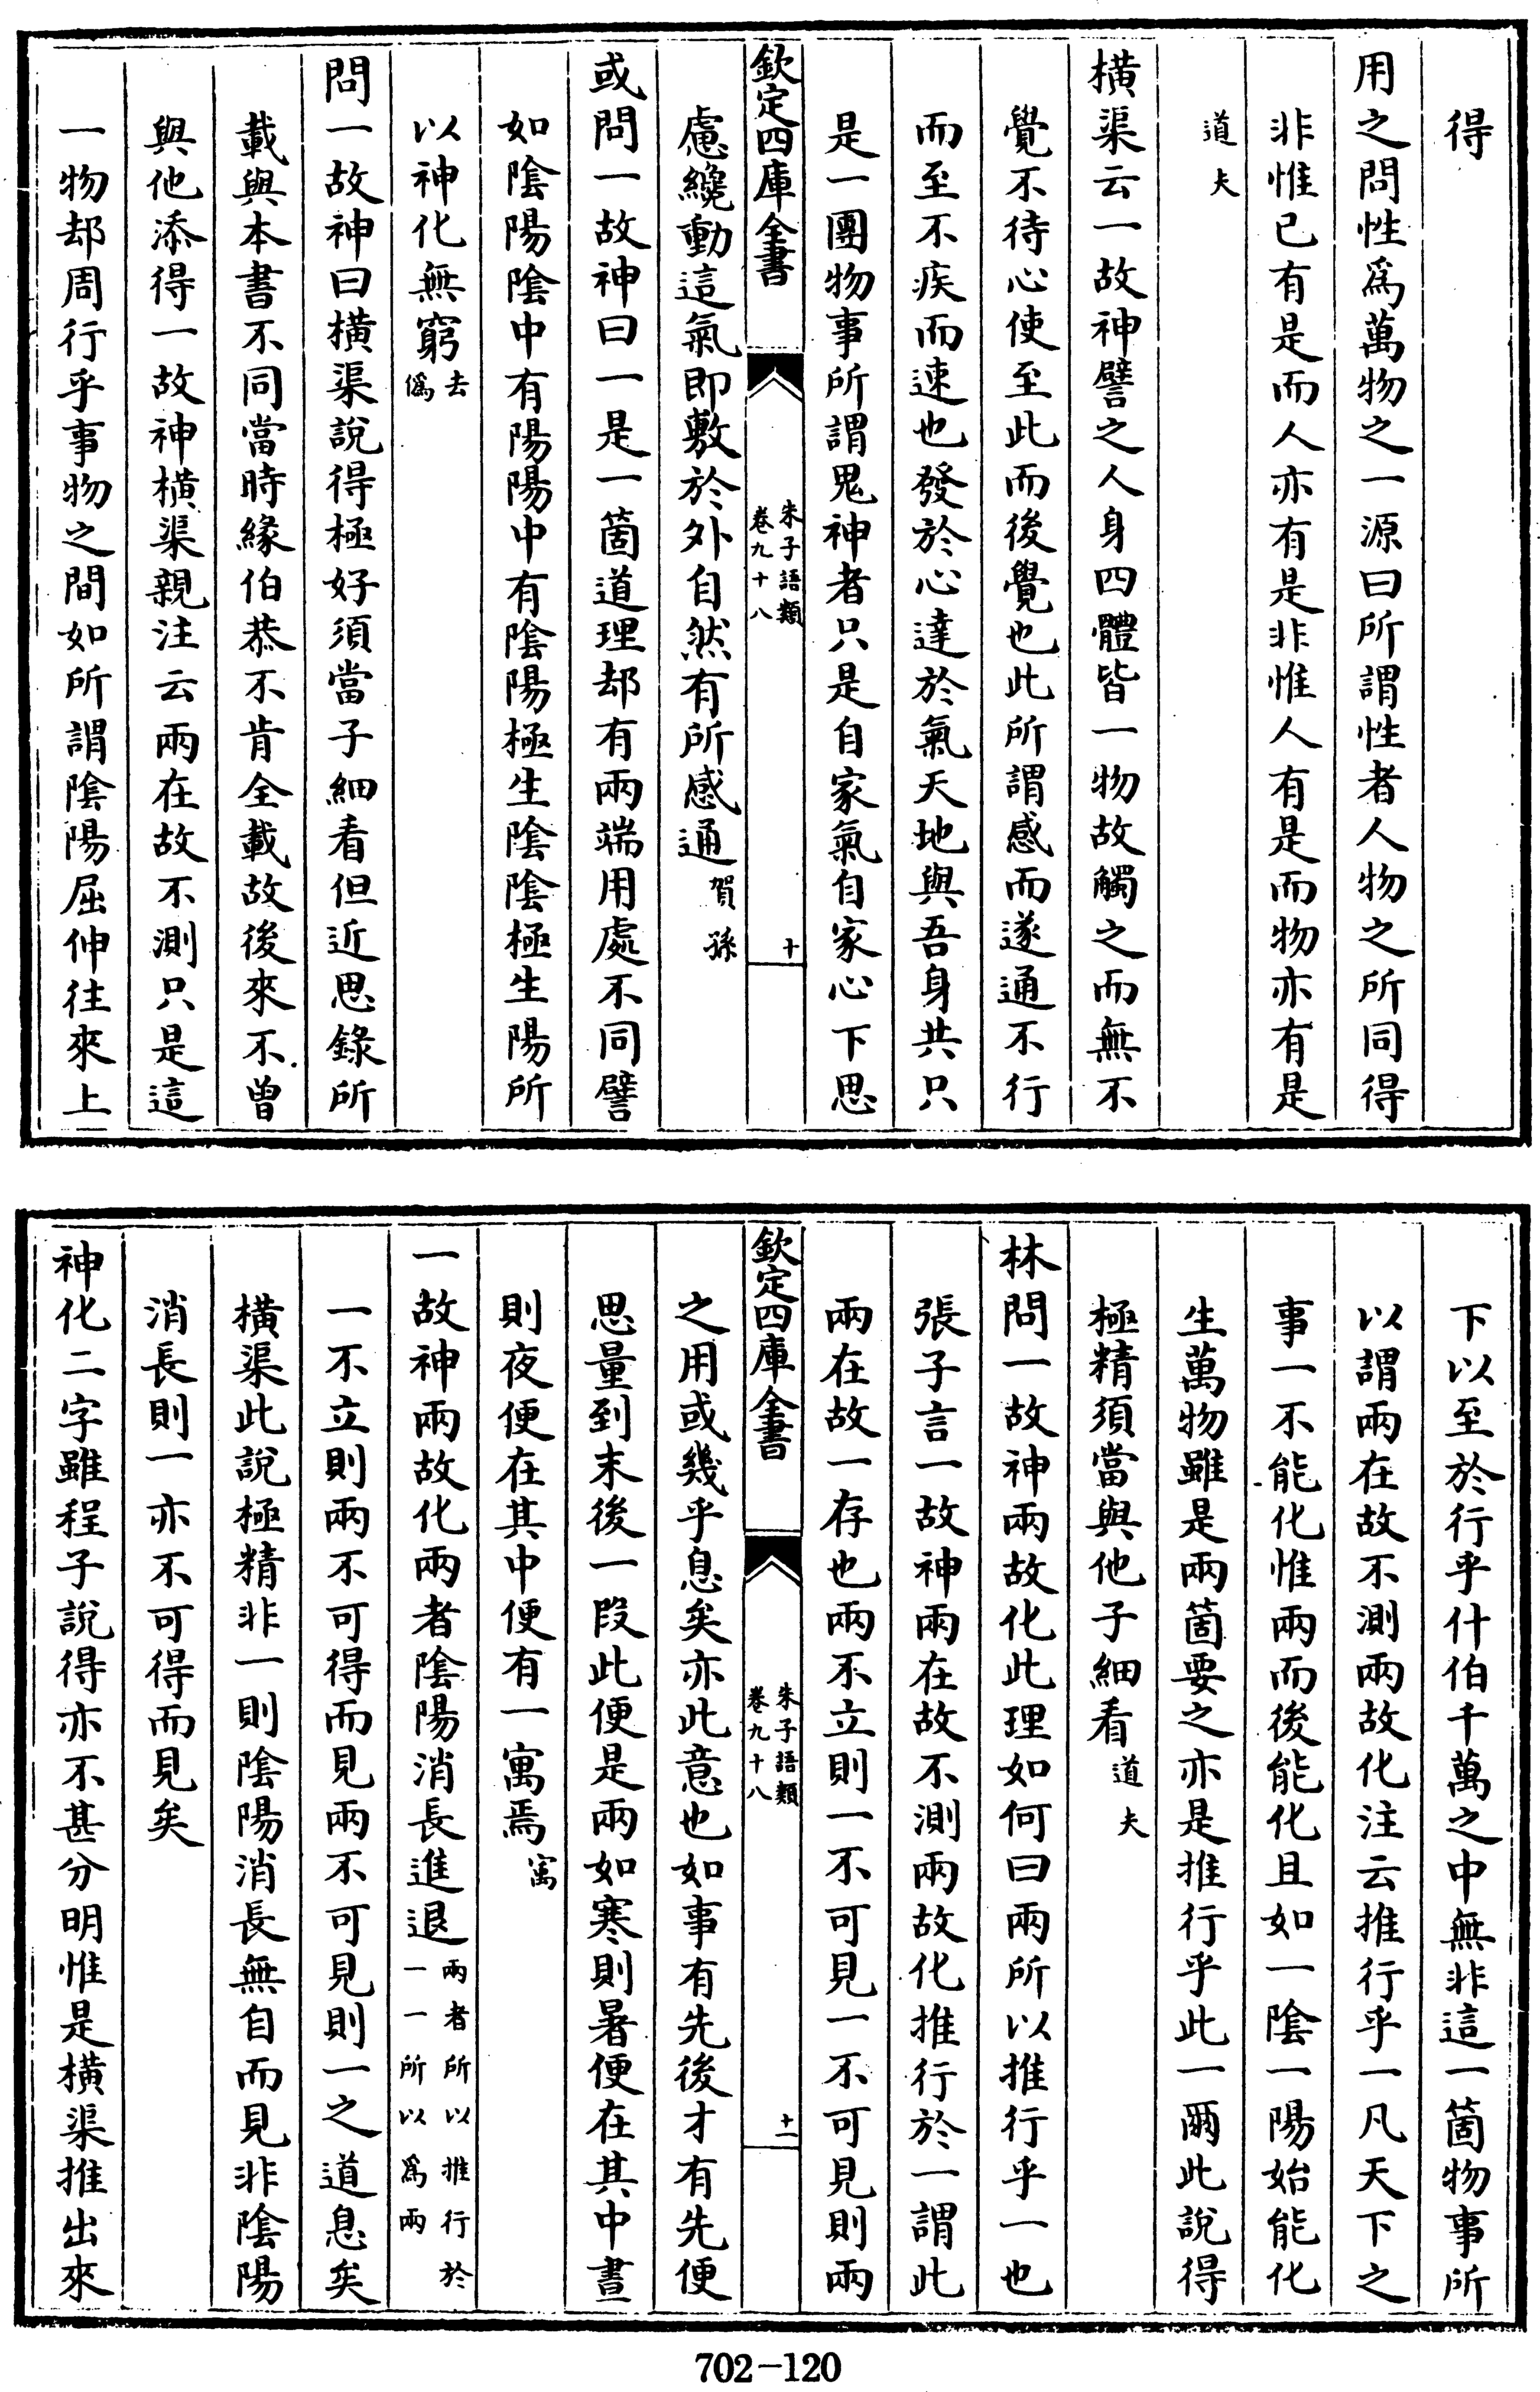 得
用之問性爲萬物之一源曰所謂性者人物之所同得
非惟已有是而人亦有是非惟人有是而物亦有是
道夫
橫渠云一故神譬之人身四體皆一物故觸之而無不
覺不待心使至此而後覺也此所謂感而遂通不行
而至不疾而速也發於心達於氣天地與吾身共只
是一團物事所謂鬼神者只是自家氣自家心下思
欽定四庫全書
朱子語類
卷九十八
十
慮纔動這氣即敷於外自然有所感通賀孫
或問一故神曰一是一箇道理却有兩端用處不同譬
如陰陽陰中有陽陽中有陰陽極生陰陰極生陽所
以神化無窮去僞
問一故神曰橫渠說得極好須當子細看但近思錄所
載與本書不同當時緣伯恭不肯全載故後來不曾
與他添得一故神橫渠親注云兩在故不測只是這
一物却周行乎事物之間如所謂陰陽屈伸往來上
下以至於行乎什伯千萬之中無非這一箇物事所
以謂兩在故不測兩故化注云推行乎一凡天下之
事一不能化惟兩而後能化且如一陰一陽始能化
生萬物雖是兩箇要之亦是推行乎此一爾此說得
極精須當與他子細看道夫
林問一故神兩故化此理如何曰兩所以推行乎一也
張子言一故神兩在故不測兩故化推行於一謂此
兩在故一存也兩不立則一不可見一不可見則兩
欽定四庫全書
朱子語類
卷九十八
十一
之用或幾乎息矣亦此意也如事有先後才有先便
思量到末後一段此便是兩如寒則暑便在其中晝
則夜便在其中便有一寓焉寓
一故神兩故化兩者陰陽消長進退兩者所以推行於
一一所以爲兩
一不立則兩不可得而見兩不可見則一之道息矣
橫渠此說極精非一則陰陽消長無自而見非陰陽
消長則一亦不可得而見矣
神化二字雖程子說得亦不甚分明惟是橫渠推出來
702-120